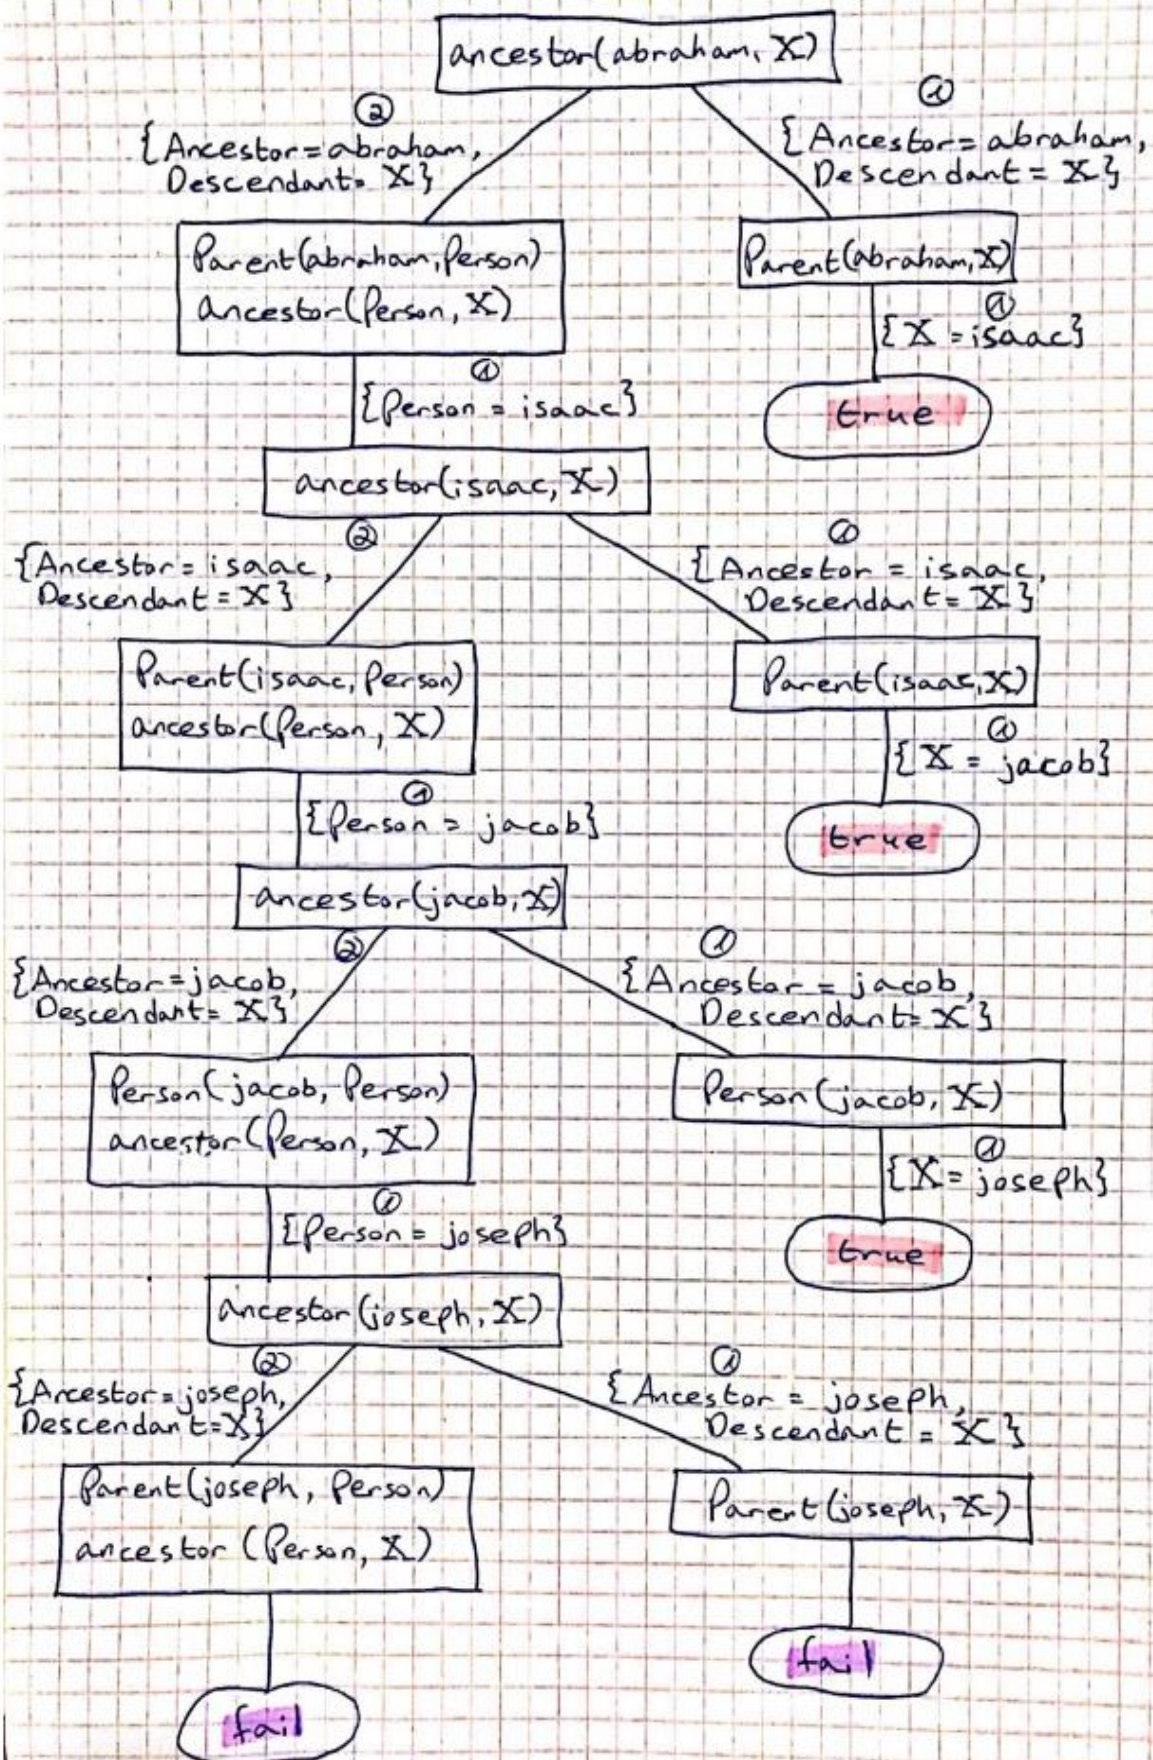 ancestor(abraham, X)
②
①
{Ancestor=abraham,
Descendant= X}
{Ancestor= abraham,
Descendant = X}
Parent(abraham,Person)
ancestor(Person, X)
Parent(abraham,X)
①
{X = isaac}
true
①
{Person = isaac}
ancestor(isaac, X)
②
①
{Ancestor= isaac,
Descendant = X}
{Ancestor = isaac,
Descendant= X}
Parent(isaac, Person)
ancestor(Person, X)
Parent(isaac,X)
①
{X = jacob}
true
①
{Person = jacob}
ancestor(jacob,X)
②
①
{Ancestor=jacob,
Descendant= X}
{Ancestor = jacob,
Descendant= X}
Person(jacob, Person)
ancestor(Person, X)
Person(jacob, X)
①
{X= joseph}
true
①
{Person = joseph}
ancestor(joseph, X)
②
①
{Ancestor=joseph,
Descendant=X}
{Ancestor = joseph,
Descendant = X}
Parent(joseph, Person)
ancestor (Person, X)
Parent(joseph, X)
fail
fail